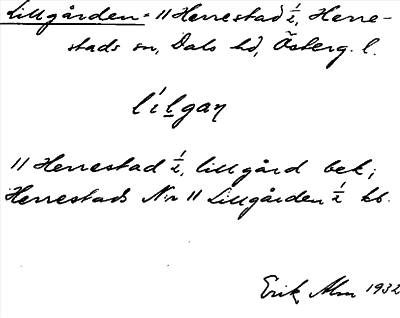 Lillgården = 11 Herrestad ½, Herre-
stads sn, Dals hd, Österg. l.
lílgaɳ
11 Herrestad ½, lillgård bek;
Herrestads N:r 11 Lillgården ½ kb.
Erik Alm 1932